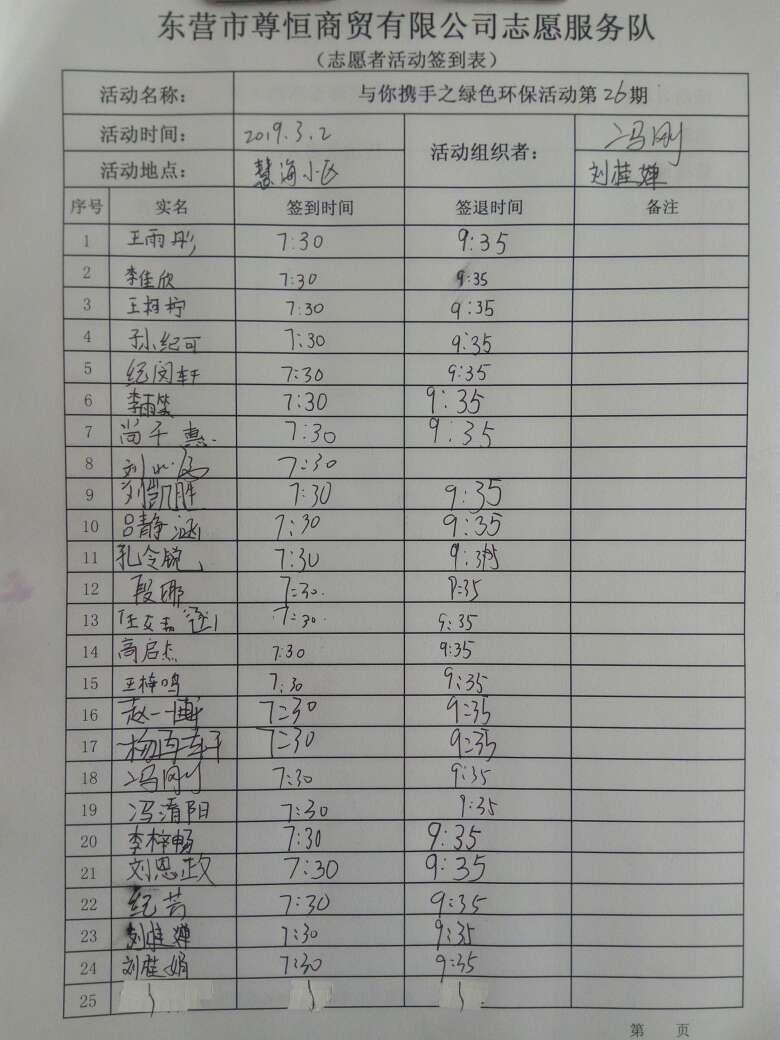 东营市尊恒商贸有限公司志愿服务队
（志愿者活动签到表）
活动名称： 与你携手之绿色环保活动第26期
活动时间： 2019.3.2 活动组织者： 冯刚
活动地点： 慧海小区 刘桂婵
序号 实名 签到时间 签退时间 备注
1 王雨彤 7:30 9:35
2 李佳欣 7:30 9:35
3 王柯柠 7:30 9:35
4 孙纪可 7:30 9:35
5 纪闵轩 7:30 9:35
6 李雨笑 7:30 9:35
7 尚千惠 7:30 9:35
8 刘 7:30
9 刘凯胜 7:30 9:35
10 吕静涵 7:30 9:35
11 孔令锐 7:30 9:35
12 段娜 7:30 9:35
13 任 7:30 9:35
14 高启杰 7:30 9:35
15 王梓鸣 7:30 9:35
16 赵一博 7:30 9:35
17 杨再轩 7:30 9:35
18 冯刚 7:30 9:35
19 冯清阳 7:30 9:35
20 李梓畅 7:30 9:35
21 刘恩政 7:30 9:35
22 纪芸 7:30 9:35
23 刘桂婵 7:30 9:35
24 刘桂娟 7:30 9:35
25
第 页